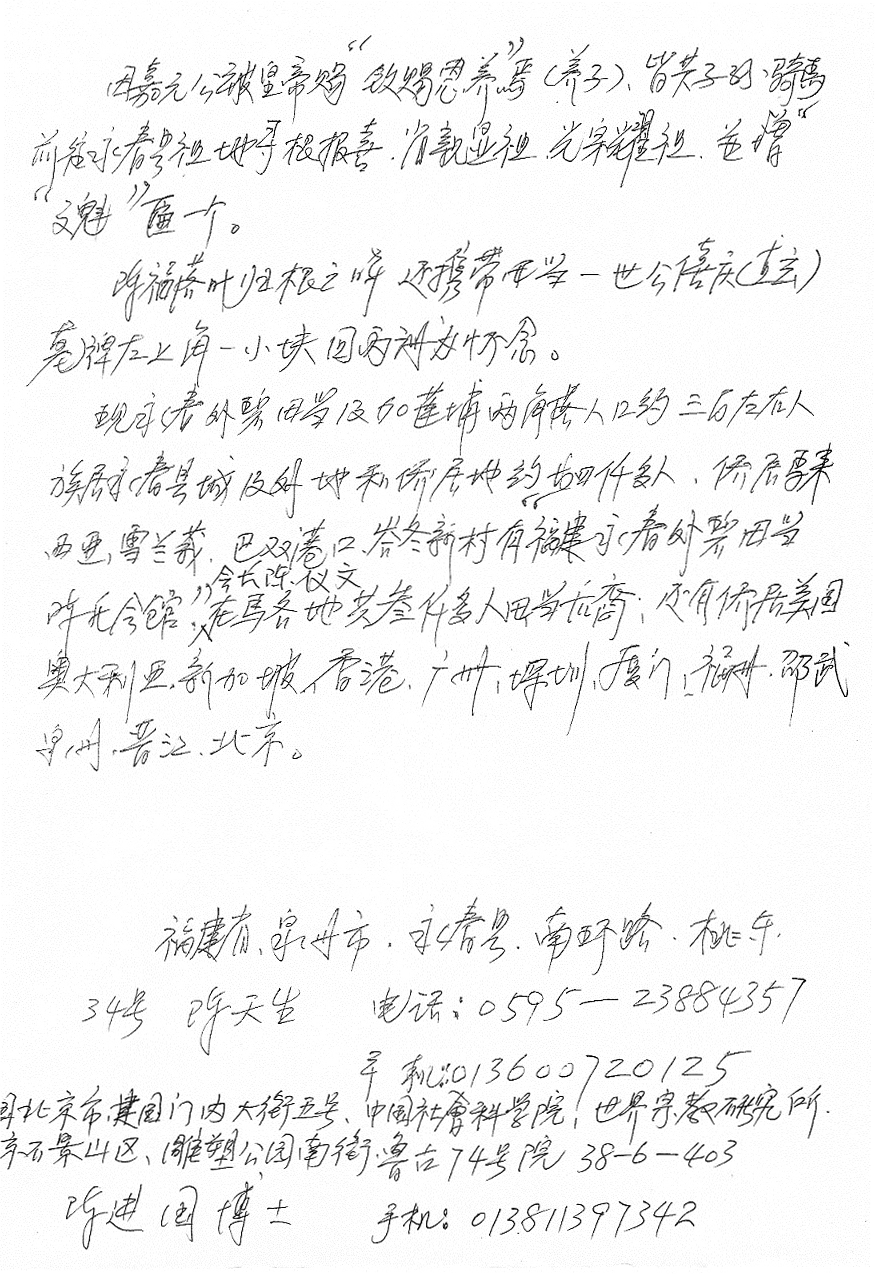 因嘉元公被皇帝赐“钦赐恩养”焉(养子)、皆其子孙骑马
前往永春县祖地寻根报喜、省亲显祖、光宗耀祖、并赠
“文魁”匾一个。
陈福落叶归根之时 还携带田当一世公僖庆(直玄)
墓碑左上角一小块回两州为怀念。
现永春外碧田当及加莲埔两角落人口约三百左右人
族居永春县城及外地和侨居地约 仟多人、侨居马来
西亚,雪兰莪,巴双港口,峇冬新村有“福建永春外碧田当
陈氏会馆”会长陈汉文,在马各地共叁仟多人田当后裔;还有侨居美国
奥大利亚、新加坡、香港、广州、深圳、厦门、福州、邵武
泉州、晋江、北京。
福建省、泉州市、永春县、南环路、桃东
34号 陈天生 电话:0595—23884357
手机:013600720125
北京市建国门内大街五号、中国社会科学院,世界宗教研究所.
京石景山区、雕塑公园南街鲁古74号院 38-6-403
陈进国博士 手机:013811397342